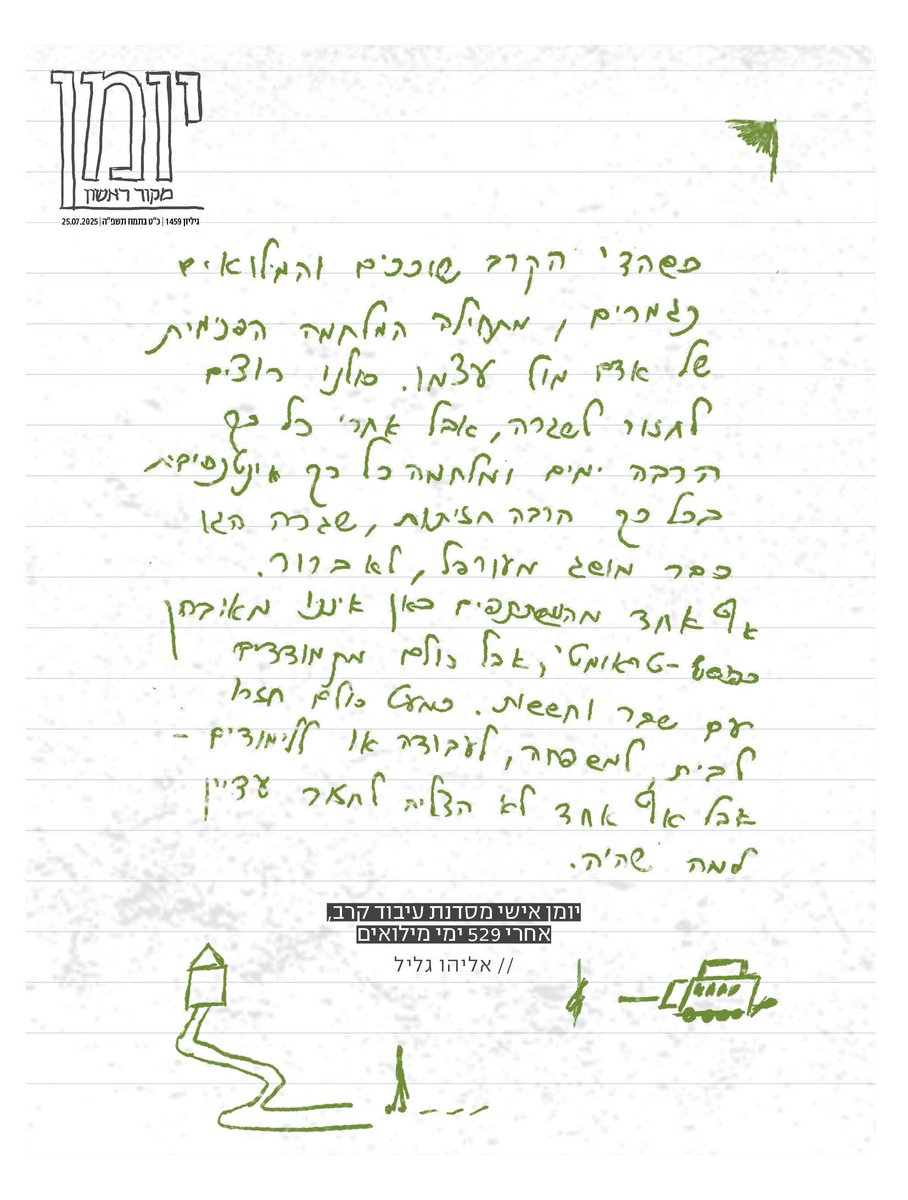 יומן
מקור ראשון
גיליון 1459 | כ"ט בתמוז תשפ"ה | 25.07.2025
כשהדי הקרב שוככים והמילואים
נגמרים, מתחילה המלחמה הפנימית
של אדם מול עצמו. כולנו רוצים
לחזור לשגרה, אבל אחרי כל כך
הרבה ימים ומלחמה כל כך אינטנסיבית
בכל כך הרבה חזיתות, שגרה הוא
כבר מושג מעורפל, לא ברור.
אף אחד מהמשתתפים כאן איננו מאובחן
כפוסט-טראומטי, אבל כולם מתמודדים
עם שבר וחששות. כמעט כולם חזרו
לבית, למשפחה, לעבודה או ללימודים -
אבל אף אחד לא הצליח לחזור עדיין
למה שהיה.
יומן אישי מסדנת עיבוד קרב,
אחרי 529 ימי מילואים
// אליהו גליל